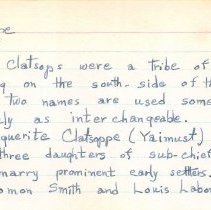 pe
Clatsops were a tribe of
g on the south-side of th
two names are used some
ly as interchangeable.
querite Clatsoppe (Yaimust)
three daughters of sub-chief
marry prominent early settlers.
omon Smith and Louis Labo